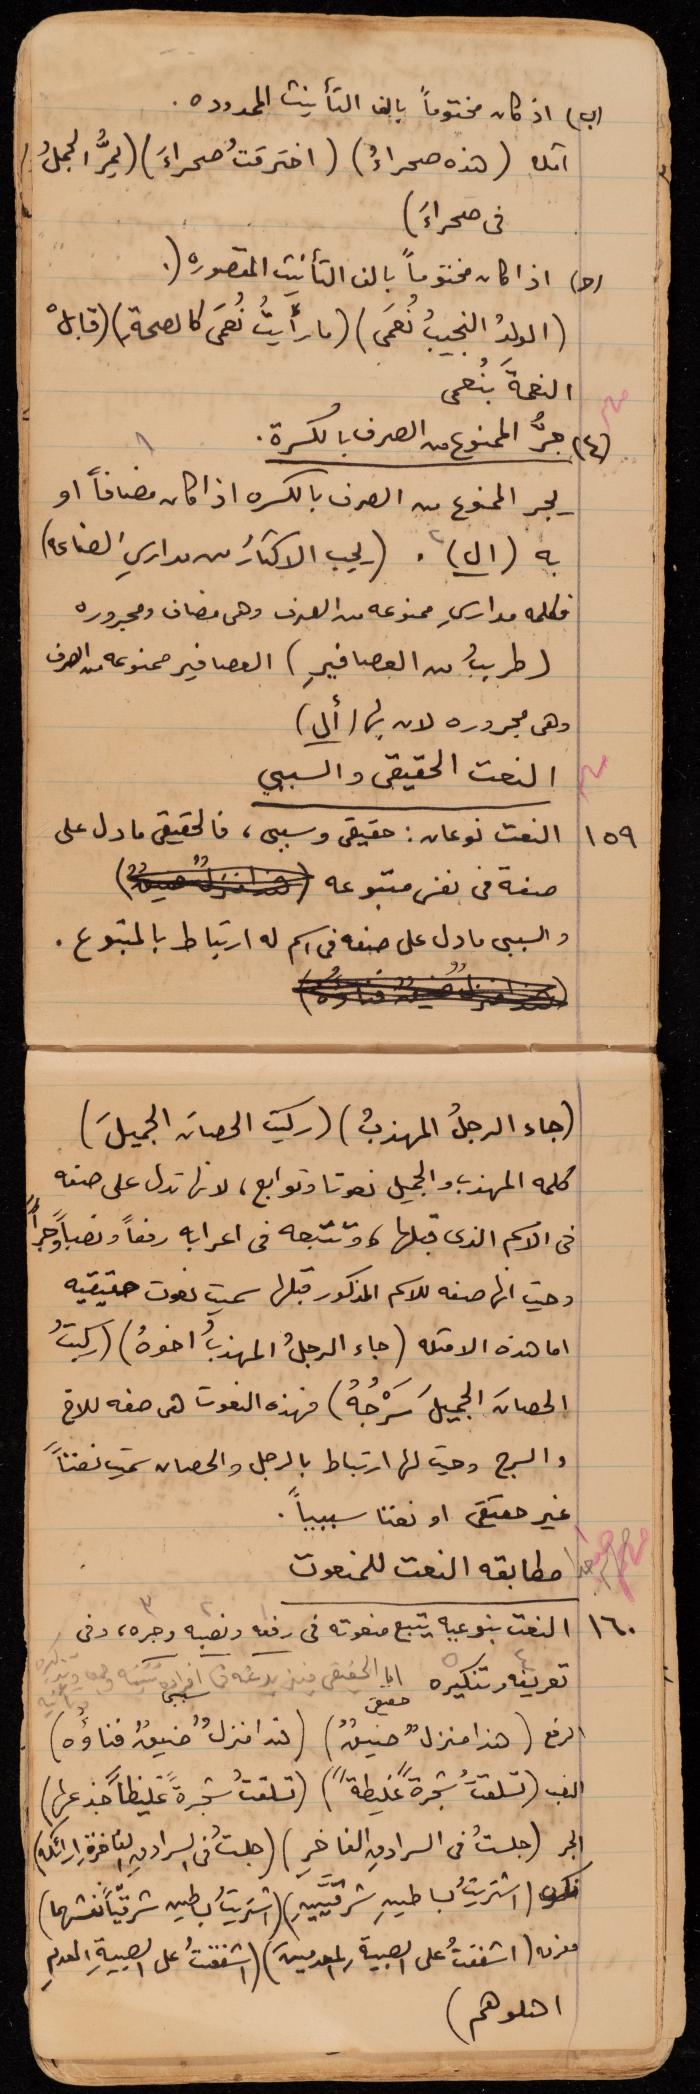 (ب) اذ كان مختوماً بالف التأنيث الممدوده .
امثله (هذه صحراءُ) (اخترقتُ صحراءَ) (يمرُّ الجملُ
فى صحراءَ)
(حـ) اذا كان مختوماً بالف التأنيث المقصوره (.
(الولدُ النجيبُ نُعمَى) (ما رأيتُ نُعمَى كالصحةِ) (قابلْ
النعمةَ بنُعمى
(٤) جرُّ الممنوع من الصرف بالكسرة .
يجر الممنوع من الصرف بالكسره اذا كان مضافاً او
به (ال) . (يجب الاكثارُ من مدارسِ الصناعه)
فكلمه مدارسِ ممنوعه من الصرف وهى مضاف ومجروره
(طربتُ من العصافيرِ) العصافير ممنوعه من الصرف
وهى مجروره لان بها (أل)
النعت الحقيقى والسببي
١٥٩ النعت نوعان : حقيقى وسببى ، فالحقيقى مادل على
صفة فى نفس متبوعه (هذا منزلٌ ضيقٌ)
والسببى مادل على صفه فى اسم له ارتباط بالمتبوع .
(هذا منزلٌ ضيقٌ فناؤُهُ)
(جاء الرجلُ المهذبُ) (ركبت الحصان الجميلَ)
كلمه المهذب والجميل نعوتا وتوابع ، لانها تدل على صفه
فى الاسم الذى قبلها ، وتتبعه فى اعرابه رفعاً ونصباً وجراً
وحيث انها صفه للاسم المذكور قبلها سميت نعوت حقيقيه
اما هذه الامثله (جاء الرجلُ المهذبُ اخوهُ) (ركبتُ
الحصانَ الجميلَ سَرْجُهُ) فهذه النعوت هى صفه للاخ
والسرج وحيث لها ارتباط بالرجل والحصان سميت نعتاً
غير حقيقى او نعتا سببياً .
مطابقه النعت للمنعوت
١٦٠ النعت بنوعيه يتبع منعوته فى رفعه ونصبه وجره ، وفى
تعريفه وتنكيره اما الحقيقى فيزيد عنه فى افراده تثنيته وجمعه وتذكيره
حقيقى سببى
الرفع (هذا منزلٌ ضيقٌ) (هذا منزلٌ ضيقٌ فناؤُه)
النصب (تسلقتُ شجرةً غليظةً) (تسلقتُ شجرةً غليظاً جذعها)
الجر (جلستُ فى السرادقِ الفاخرِ) (جلستُ فى السرادقِ الفاخرةِ ارائكه)
(اشتريتُ بساطينِ شرقيَّينِ) (اشتريتُ بساطين شرقيّاً نقشهما)
معرفه (اشفقتُ على الصبيةِ المعدمينَ) (اشفقتُ على الصبيةِ المعدمِ
اهلوهم)